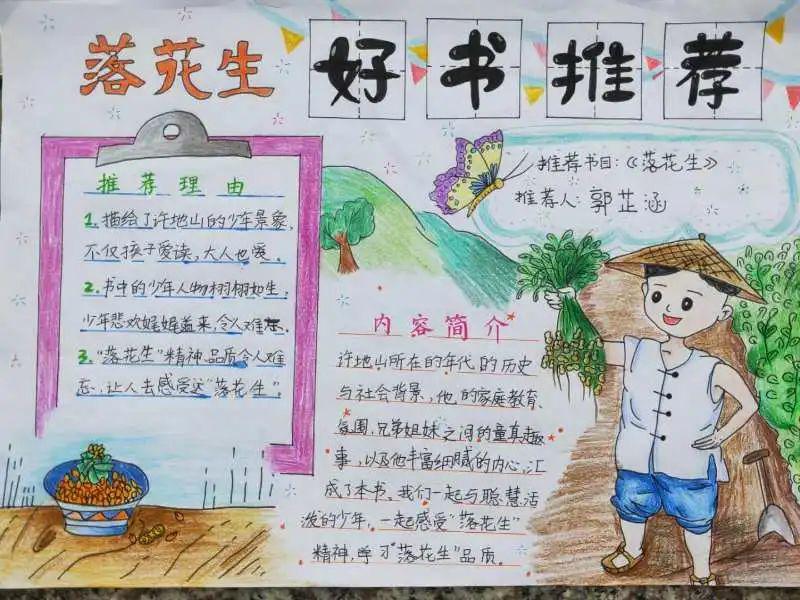 落花生 好书推荐
推荐书目:《落花生》
推荐人:郭芷涵
推荐理由
1.描绘了许地山的少年景象,
不仅孩子爱读,大人也爱。
2.书中的少年人物栩栩如生,
少年悲欢娓娓道来,令人难忘。
3."落花生"精神品质令人难
忘,让人去感受这"落花生"。
内容简介
许地山所在的年代的历史
与社会背景,他的家庭教育、
氛围,兄弟姐妹之间的童真趣
事,以及他丰富细腻的内心,汇
成了本书。我们一起与聪慧活
泼的少年,一起感受"落花生"
精神,学习"落花生"品质。